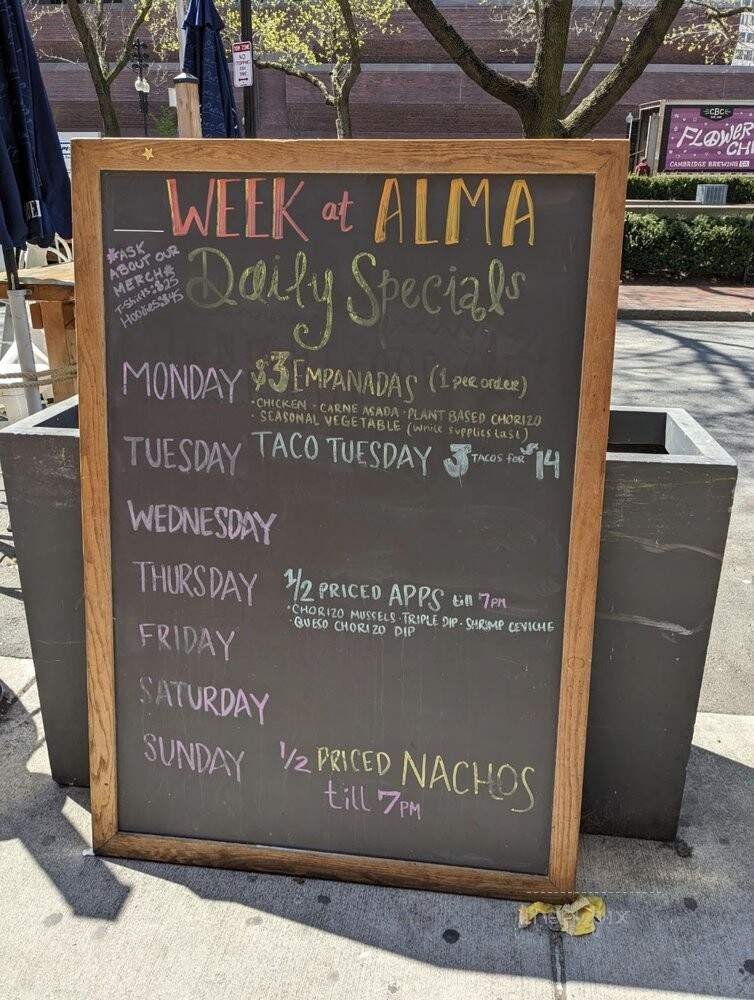 WEEK at ALMA
Daily Specials
*ASK
ABOUT OUR
MERCH*
T-Shirts:$25
Hoodies:$45
MONDAY $3 EMPANADAS (1 per order)
· CHICKEN · CARNE ASADA · PLANT BASED CHORIZO
· SEASONAL VEGETABLE (while supplies last)
TUESDAY TACO TUESDAY 3 TACOS for $14
WEDNESDAY
THURSDAY 1/2 PRICED APPS till 7PM
· CHORIZO MUSSELS · TRIPLE DIP · SHRIMP CEVICHE
· QUESO CHORIZO DIP
FRIDAY
SATURDAY
SUNDAY 1/2 PRICED NACHOS
till 7PM
CBC
FLOWER
CAMBRIDGE BREWING CO.